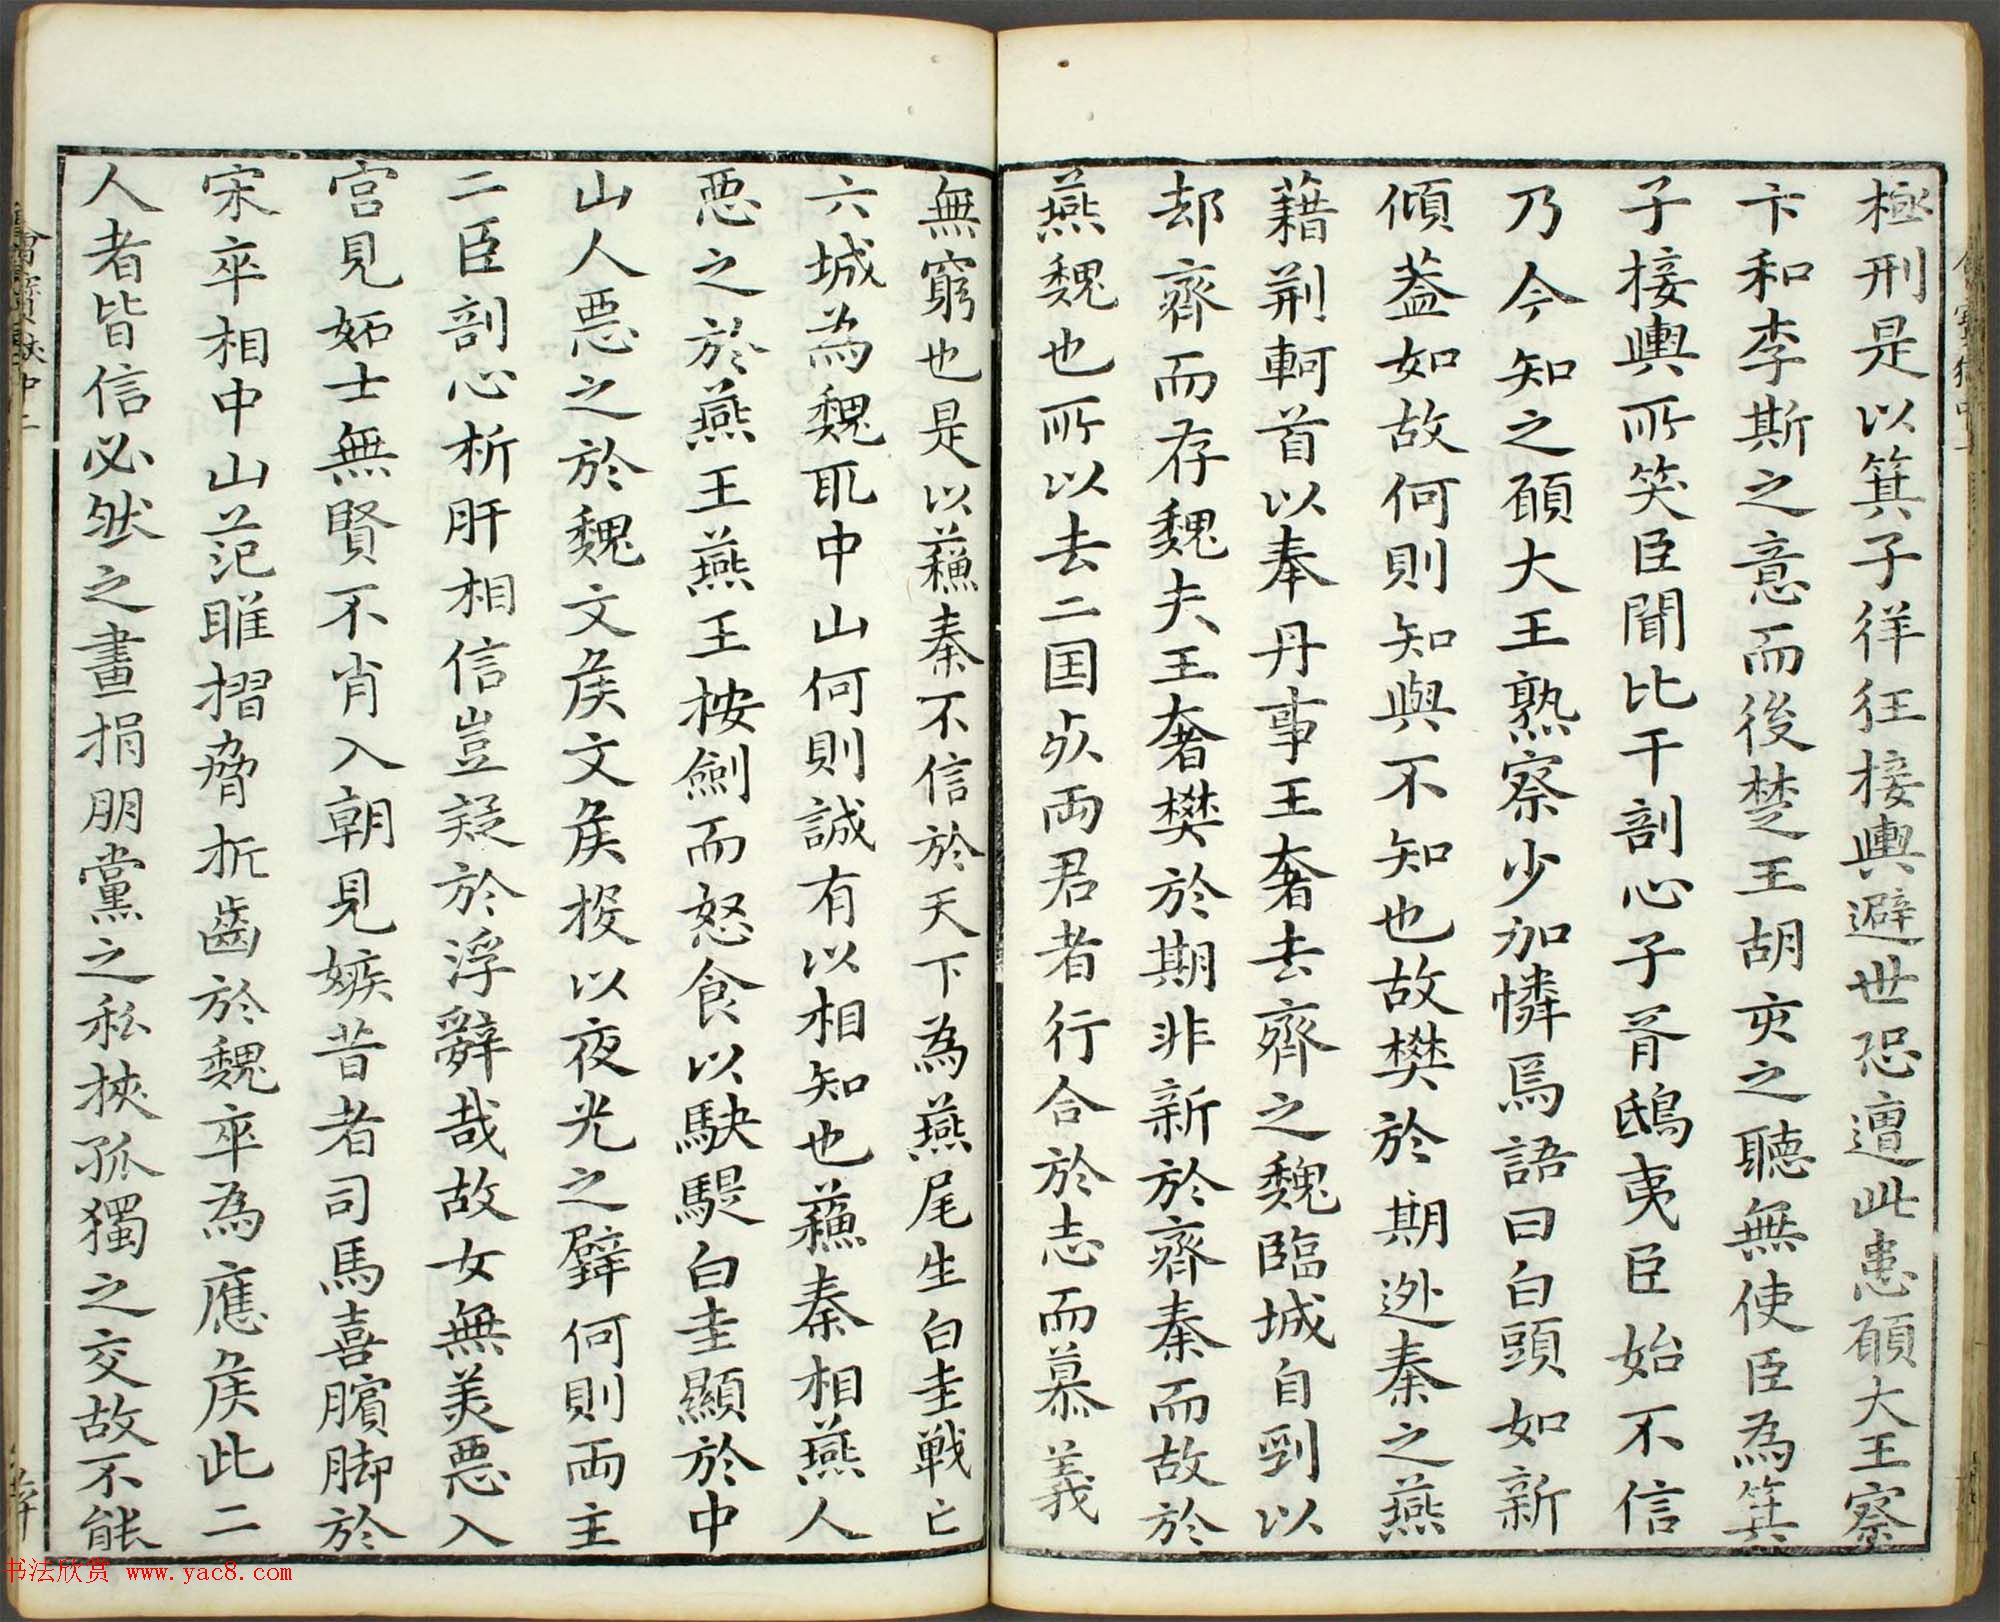 極刑是以箕子徉狂接輿避世恐遭此患願大王察
卞和李斯之意而後楚王胡亥之聽無使臣為箕
子接輿所笑臣聞比干剖心子胥鴟夷臣始不信
乃今知之願大王熟察少加憐焉語曰白頭如新
傾蓋如故何則知與不知也故樊於期逊秦之燕
藉荆軻首以奉丹事王奢去齊之魏臨城自剄以
却齊而存魏夫王奢樊於期非新於齊秦而故於
燕魏也所以去二国死两君者行合於志而慕義
無窮也是以蘓秦不信於天下為燕尾生白圭戦亡
六城為魏取中山何則誠有以相知也蘓秦相燕人
惡之於燕王燕王按劍而怒食以駃騠白圭顯於中
山人惡之於魏文侯文侯投以夜光之璧何則两主
二臣剖心析肝相信豈疑於浮辭哉故女無美惡入
宮見妬士無賢不肖入朝見嫉昔者司馬喜臏脚於
宋卒相中山范雎摺脅折齒於魏卒為應侯此二
人者皆信必然之畫捐朋黨之私挾孤獨之交故不能
书法欣赏 www.yac8.com